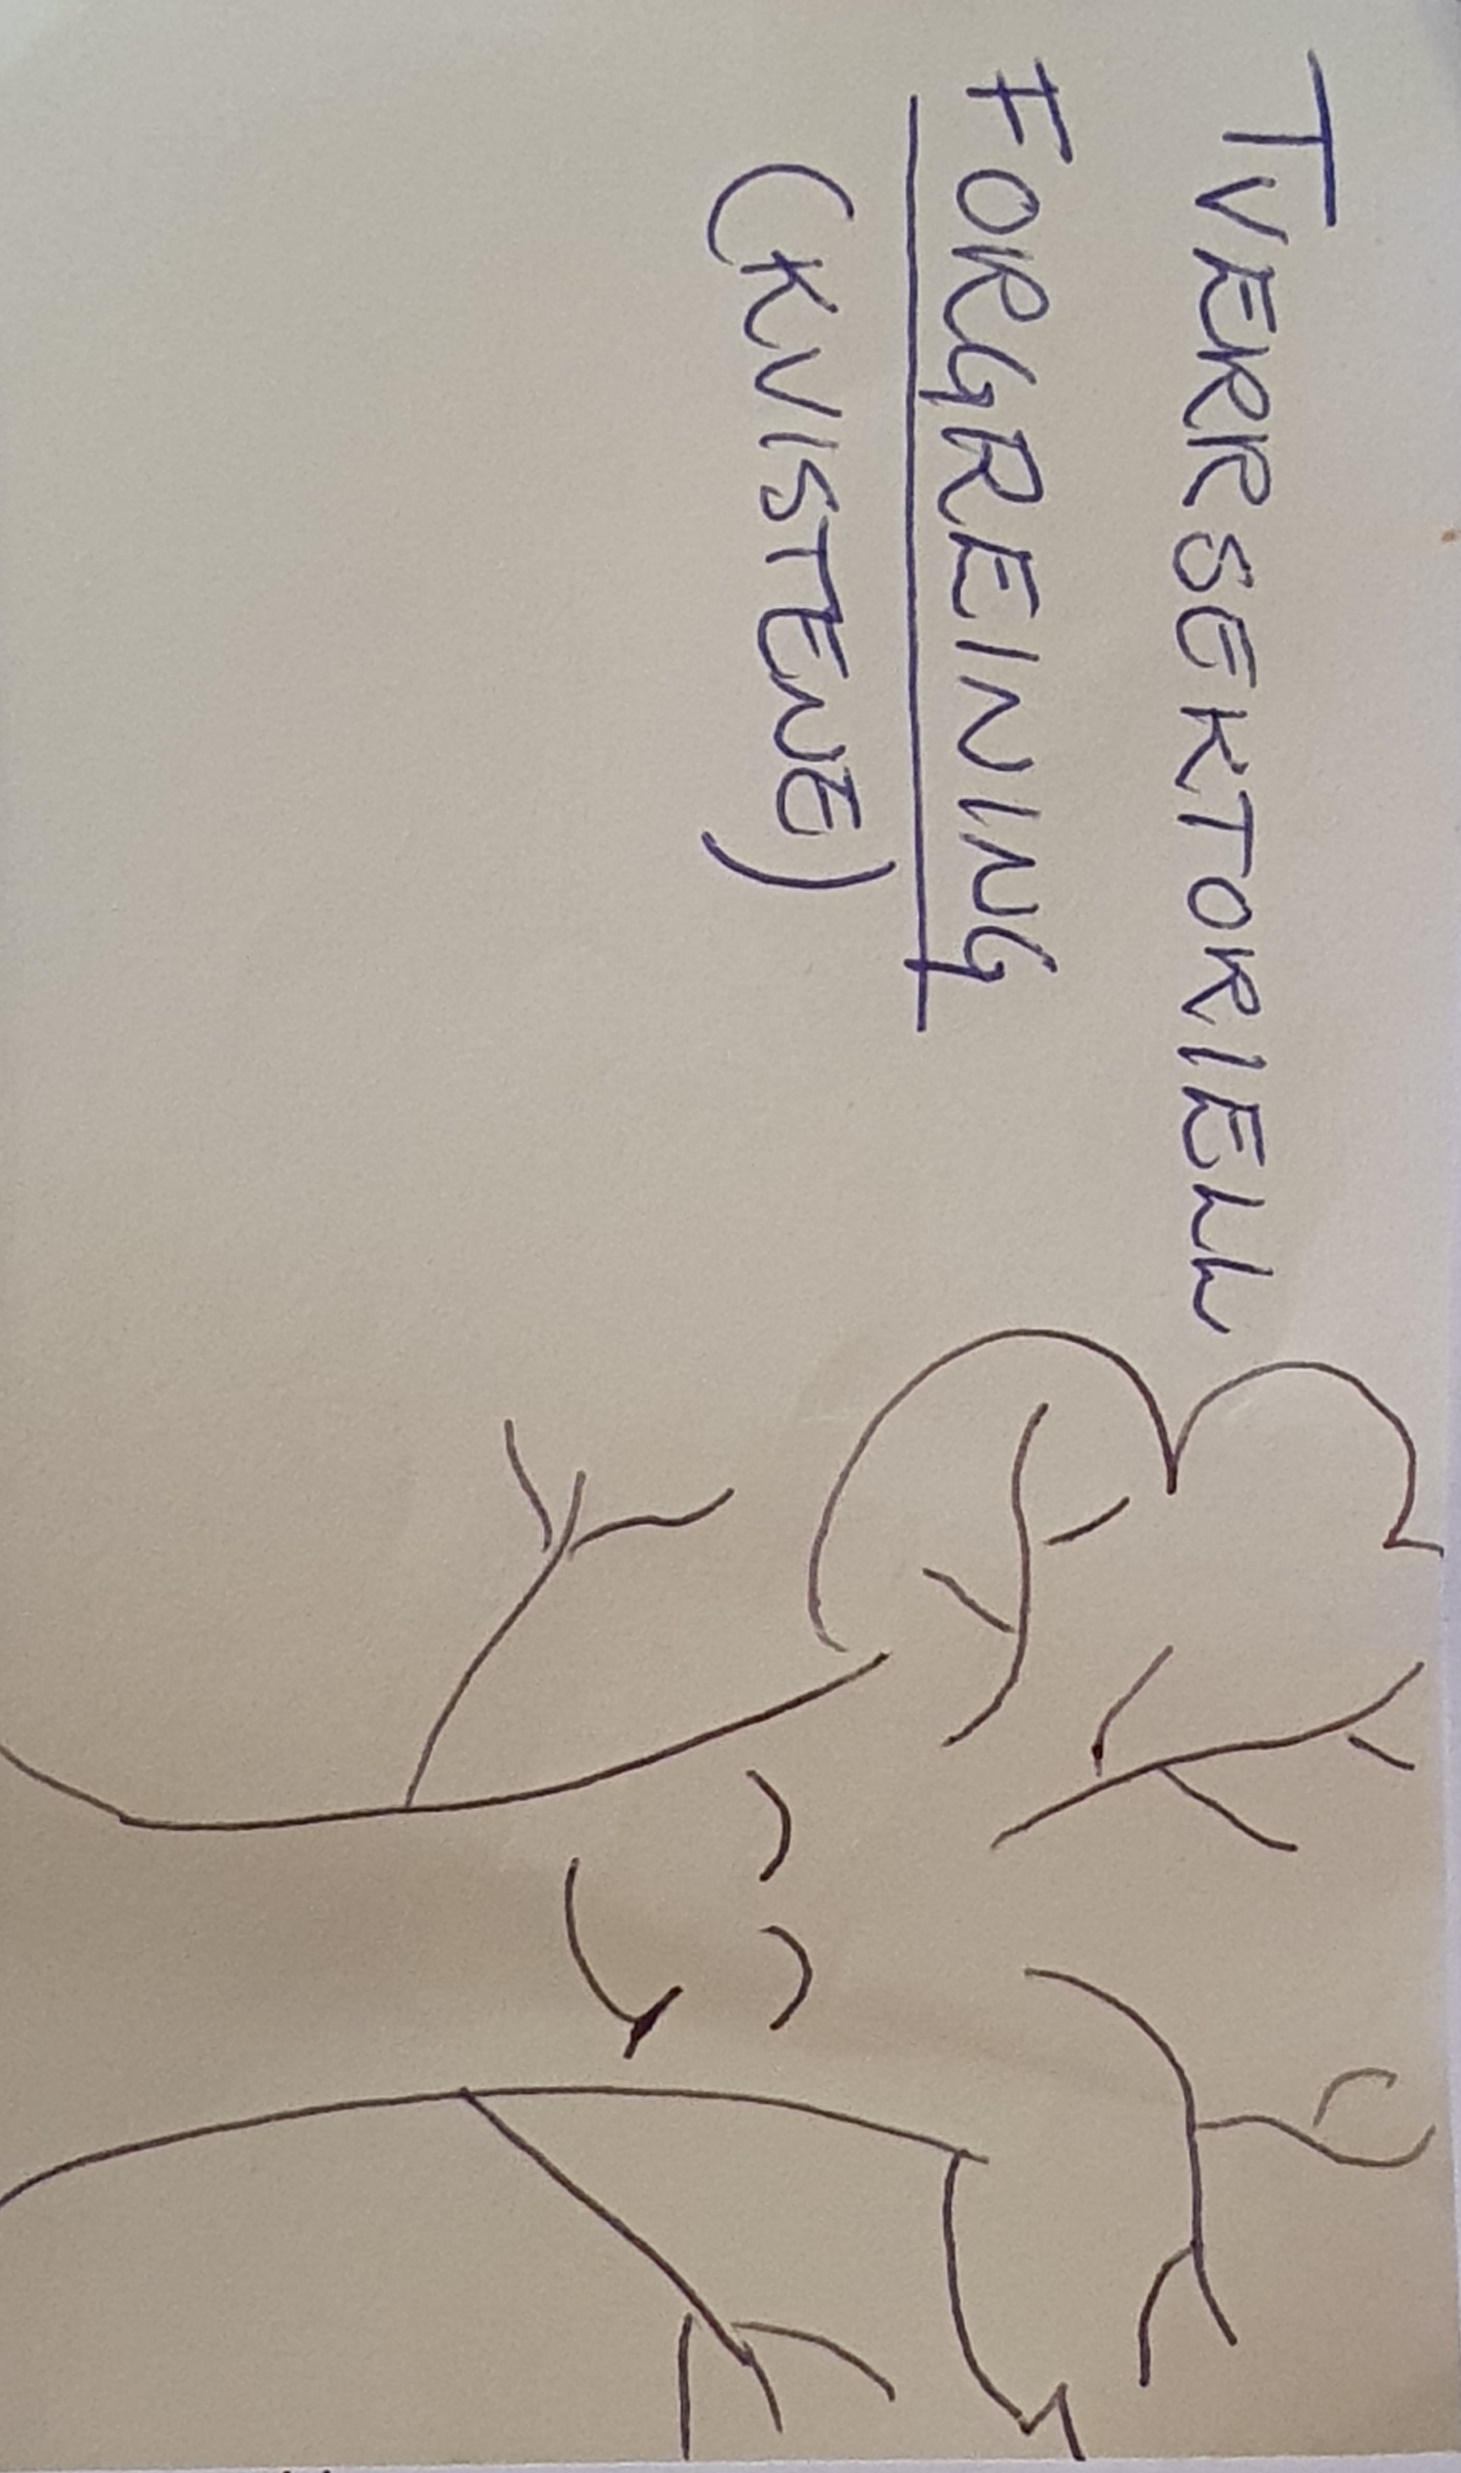 TVERRSEKTORIELL
FORGREINING
(KVISTENE)